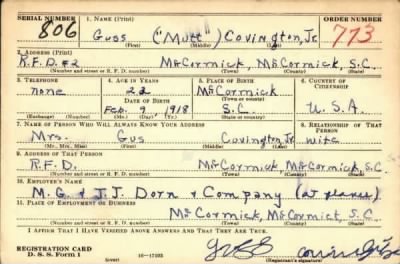 SERIAL NUMBER 1. NAME (Print) ORDER NUMBER
806 Guss ("Mutt") Covington, Jr. 773
(First) (Middle) (Last)
2. ADDRESS (Print)
R.F.D. #2 McCormick, McCormick, S.C.
(Number and street or R. F. D. number) (Town) (County) (State)
3. TELEPHONE 4. AGE IN YEARS 5. PLACE OF BIRTH 6. COUNTRY OF CITIZENSHIP
none 22 McCormick
DATE OF BIRTH (Town or county)
Feb. 9, 1918 S.C. U.S.A.
(Exchange) (Number) (Mo.) (Day) (Yr.) (State or country)
7. NAME OF PERSON WHO WILL ALWAYS KNOW YOUR ADDRESS 8. RELATIONSHIP OF THAT PERSON
Mrs. Gus Covington, Jr. wife
(Mr., Mrs., Miss) (First) (Middle) (Last)
9. ADDRESS OF THAT PERSON
R.F.D. McCormick, McCormick, S.C
(Number and street or R. F. D. number) (Town) (County) (State)
10. EMPLOYER'S NAME
M. G. & J. J. Dorn & Company
11. PLACE OF EMPLOYMENT OR BUSINESS
McCormick, McCormick, S.C
(Number and street or R. F. D. number) (Town) (County) (State)
I AFFIRM THAT I HAVE VERIFIED ABOVE ANSWERS AND THAT THEY ARE TRUE.
REGISTRATION CARD
D. S. S. Form 1 (over) 16-17105 (Registrant's signature)